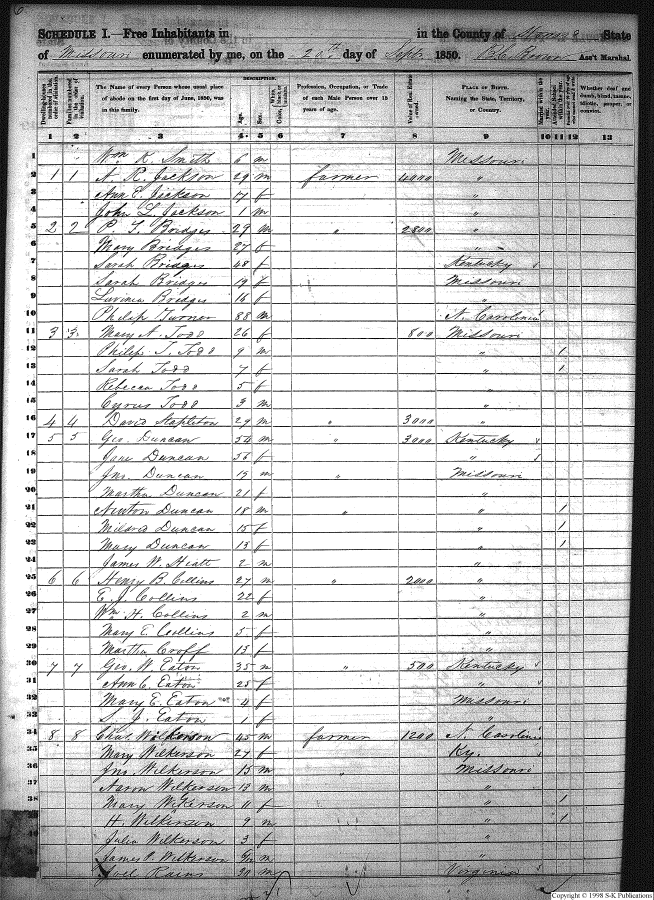 6
SCHEDULE I.—Free Inhabitants in in the County of Monroe State
of Missouri enumerated by me, on the 20th day of Sept 1850. Ass't Marshal.
Dwelling-houses numbered in the order of visitation.
Families numbered in the order of visitation.
The Name of every Person whose usual place of abode on the first day of June, 1850, was in this family.
DESCRIPTION.
Age.
Sex.
Color,
Profession, Occupation, or Trade of each Male Person over 15 years of age.
Value of Real Estate owned.
PLACE OF BIRTH.
Naming the State, Territory, or Country.
Married within the year.
Whether deaf and dumb, blind, insane, idiotic, pauper, or convict.
1 2 3 4 5 6 7 8 9 10 11 12 13
1 Wm K. Smith 6 m Missouri
2 1 1 N. R. Jackson 29 m farmer 4000 "
3 Ann E. Jackson 17 f "
4 John L. Jackson 1 m "
5 2 2 P. T. Bridges 29 m " 2800 "
6 Mary Bridges 27 f "
7 Sarah Bridges 48 f Kentucky
8 Sarah Bridges 19 f Missouri
9 Lavinia Bridges 16 f "
10 Philip Turner 88 m N. Carolina
11 3 3 Mary A. Todd 26 f 800 Missouri
12 Philip T. Todd 9 m " 1
13 Sarah Todd 7 f " 1
14 Rebecca Todd 5 f "
15 Cyrus Todd 3 m "
16 4 4 David Stapleton 29 m " 3000 "
17 5 5 Geo. Duncan 54 m " 3000 Kentucky
18 Jane Duncan 56 f "
19 Jno. Duncan 19 m " Missouri
20 Martha Duncan 21 f "
21 Newton Duncan 18 m " " 1
22 Mildred Duncan 15 f " 1
23 Mary Duncan 13 f " 1
24 James W. 2 m "
25 6 6 Henry B. Collins 27 m " 2000 "
26 E. J. Collins 22 f "
27 Wm H. Collins 2 m "
28 Mary E. Collins 5 f "
29 Martha 13 f "
30 7 7 Geo. W. Eaton 35 m " 500 Kentucky
31 Ann C. Eaton 25 f "
32 Mary E. Eaton 4 f Missouri
33 S. J. Eaton 1 f "
34 8 8 Chas. Wilkerson 45 m farmer 1200 N. Carolina
35 Mary Wilkerson 27 f Ky.
36 Jno. Wilkerson 15 m " Missouri
37 Aaron Wilkerson 13 m "
38 Mary Wilkerson 11 f " 1
H Wilkerson 9 m " 1
Julia Wilkerson 3 f "
James P. Wilkerson m "
Joel Rains 20 m Virginia
Copyright © 1998 S-K Publications